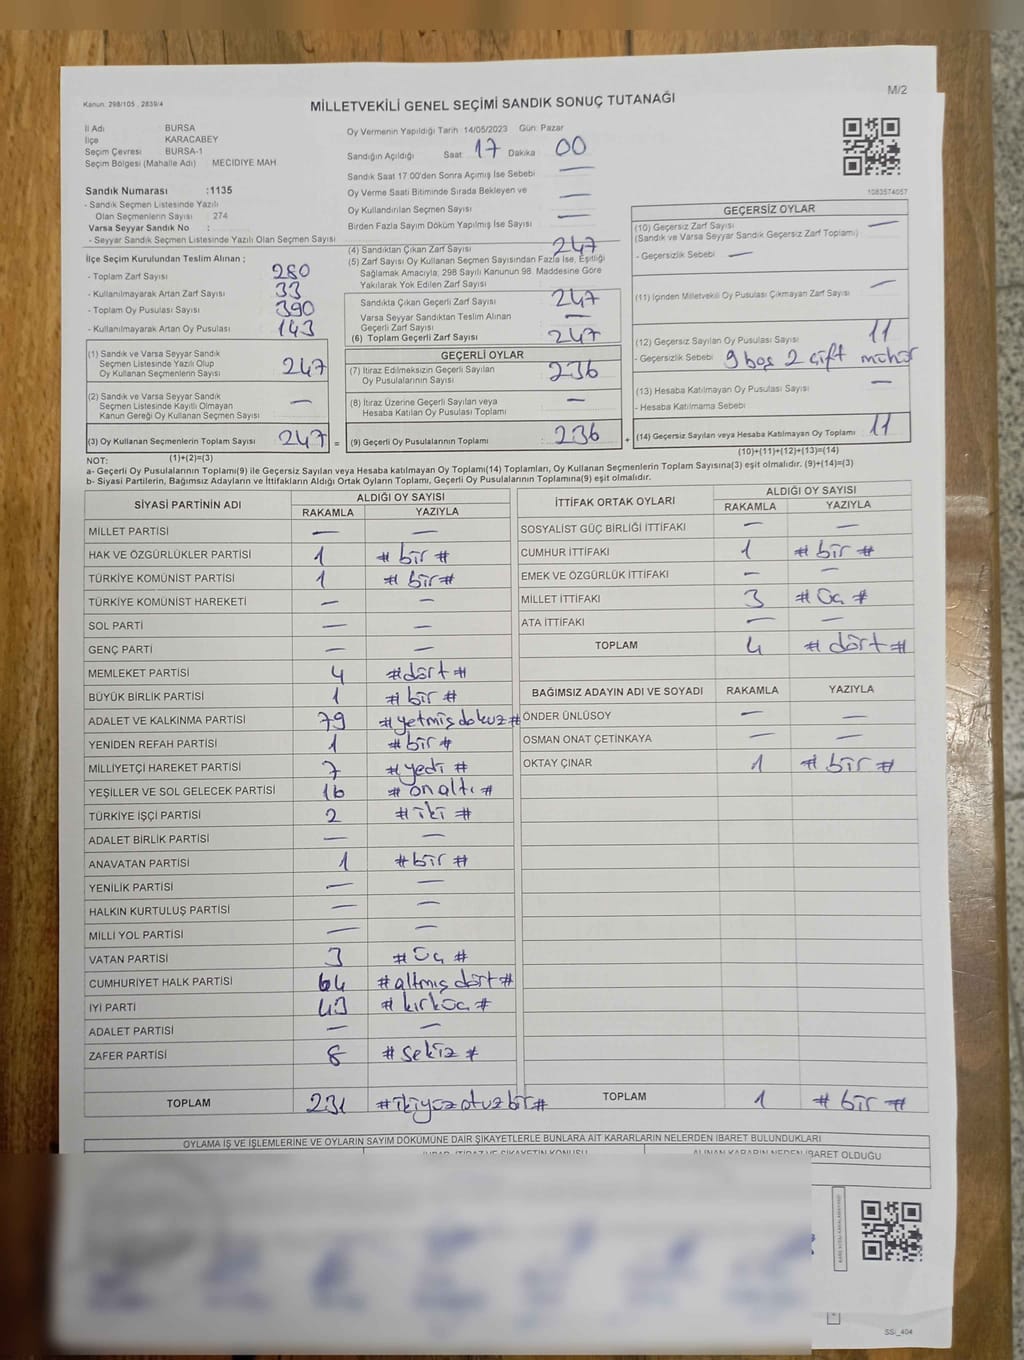 M/2
Kanun: 298/105 , 2839/4
MİLLETVEKİLİ GENEL SEÇİMİ SANDIK SONUÇ TUTANAĞI
İl Adı BURSA
İlçe KARACABEY
Seçim Çevresi BURSA-1
Seçim Bölgesi (Mahalle Adı) MECİDİYE MAH
Sandık Numarası :1135
- Sandık Seçmen Listesinde Yazılı
Olan Seçmenlerin Sayısı 274
Varsa Seyyar Sandık No :
- Seyyar Sandık Seçmen Listesinde Yazılı Olan Seçmen Sayısı
Oy Vermenin Yapıldığı Tarih 14/05/2023 Gün: Pazar
Sandığın Açıldığı Saat 17 Dakika 00
Sandık Saat 17:00'den Sonra Açımış İse Sebebi —
Oy Verme Saati Bitiminde Sırada Bekleyen ve
Oy Kullandırılan Seçmen Sayısı —
Birden Fazla Sayım Döküm Yapılmış İse Sayısı —
1083574057
İlçe Seçim Kurulundan Teslim Alınan ;
- Toplam Zarf Sayısı 280
- Kullanılmayarak Artan Zarf Sayısı 33
- Toplam Oy Pusulası Sayısı 390
- Kullanılmayarak Artan Oy Pusulası 143
(1) Sandık ve Varsa Seyyar Sandık
Seçmen Listesinde Yazılı Olup
Oy Kullanan Seçmenlerin Sayısı 247
(2) Sandık ve Varsa Seyyar Sandık
Seçmen Listesinde Kayıtlı Olmayan
Kanun Gereği Oy Kullanan Seçmen Sayısı —
(3) Oy Kullanan Seçmenlerin Toplam Sayısı 247 =
(1)+(2)=(3)
(4) Sandıktan Çıkan Zarf Sayısı 247
(5) Zarf Sayısı Oy Kullanan Seçmen Sayısından Fazla İse, Eşitliği
Sağlamak Amacıyla, 298 Sayılı Kanunun 98. Maddesine Göre
Yakılarak Yok Edilen Zarf Sayısı
Sandıkta Çıkan Geçerli Zarf Sayısı 247
Varsa Seyyar Sandıktan Teslim Alınan
Geçerli Zarf Sayısı —
(6) Toplam Geçerli Zarf Sayısı 247
GEÇERLİ OYLAR
(7) İtiraz Edilmeksizin Geçerli Sayılan
Oy Pusulalarının Sayısı 236
(8) İtiraz Üzerine Geçerli Sayılan veya
Hesaba Katılan Oy Pusulası Toplamı —
(9) Geçerli Oy Pusulalarının Toplamı : 236 +
GEÇERSİZ OYLAR
(10) Geçersiz Zarf Sayısı —
(Sandık ve Varsa Seyyar Sandık Geçersiz Zarf Toplamı)
- Geçersizlik Sebebi —
(11) İçinden Milletvekili Oy Pusulası Çıkmayan Zarf Sayısı —
(12) Geçersiz Sayılan Oy Pusulası Sayısı 11
- Geçersizlik Sebebi 9 boş 2 çift mühür
(13) Hesaba Katılmayan Oy Pusulası Sayısı —
- Hesaba Katılmama Sebebi
(14) Geçersiz Sayılan veya Hesaba Katılmayan Oy Toplamı 11
(10)+(11)+(12)+(13)=(14)
NOT:
a- Geçerli Oy Pusulalarının Toplamı(9) ile Geçersiz Sayılan veya Hesaba katılmayan Oy Toplamı(14) Toplamları, Oy Kullanan Seçmenlerin Toplam Sayısına(3) eşit olmalıdır. (9)+(14)=(3)
b- Siyasi Partilerin, Bağımsız Adayların ve İttifakların Aldığı Ortak Oyların Toplamı, Geçerli Oy Pusulalarının Toplamına(9) eşit olmalıdır.
SİYASİ PARTİNİN ADI ALDIĞI OY SAYISI
RAKAMLA YAZIYLA
MİLLET PARTİSİ — —
HAK VE ÖZGÜRLÜKLER PARTİSİ 1 # bir #
TÜRKİYE KOMÜNİST PARTİSİ 1 # bir #
TÜRKİYE KOMÜNİST HAREKETİ — —
SOL PARTİ — —
GENÇ PARTİ — —
MEMLEKET PARTİSİ 4 #dört#
BÜYÜK BİRLİK PARTİSİ 1 # bir #
ADALET VE KALKINMA PARTİSİ 79 #yetmişdokuz#
YENİDEN REFAH PARTİSİ 1 # bir #
MİLLİYETÇİ HAREKET PARTİSİ 7 #yedi #
YEŞİLLER VE SOL GELECEK PARTİSİ 16 # onaltı #
TÜRKİYE İŞÇİ PARTİSİ 2 # iki #
ADALET BİRLİK PARTİSİ — —
ANAVATAN PARTİSİ 1 # bir #
YENİLİK PARTİSİ — —
HALKIN KURTULUŞ PARTİSİ — —
MİLLİ YOL PARTİSİ — —
VATAN PARTİSİ 3 # üç #
CUMHURİYET HALK PARTİSİ 64 #altmış dört#
İYİ PARTİ 43 # kırküç #
ADALET PARTİSİ — —
ZAFER PARTİSİ 8 # sekiz #
TOPLAM 231 #ikiyüzotuzbir#
İTTİFAK ORTAK OYLARI ALDIĞI OY SAYISI
RAKAMLA YAZIYLA
SOSYALİST GÜÇ BİRLİĞİ İTTİFAKI — —
CUMHUR İTTİFAKI 1 # bir #
EMEK VE ÖZGÜRLÜK İTTİFAKI — —
MİLLET İTTİFAKI 3 # üç #
ATA İTTİFAKI — —
TOPLAM 4 # dört #
BAĞIMSIZ ADAYIN ADI VE SOYADI RAKAMLA YAZIYLA
ÖNDER ÜNLÜSOY — —
OSMAN ONAT ÇETİNKAYA — —
OKTAY ÇINAR 1 # bir #
TOPLAM 1 # bir #
OYLAMA İŞ VE İŞLEMLERİNE VE OYLARIN SAYIM DÖKÜMÜNE DAİR ŞİKAYETLERLE BUNLARA AİT KARARLARIN NELERDEN İBARET BULUNDUKLARI
İHBAR, İTİRAZ VE ŞİKAYETİN KONUSU ALINAN KARARIN NEDEN İBARET OLDUĞU
SSİ_404